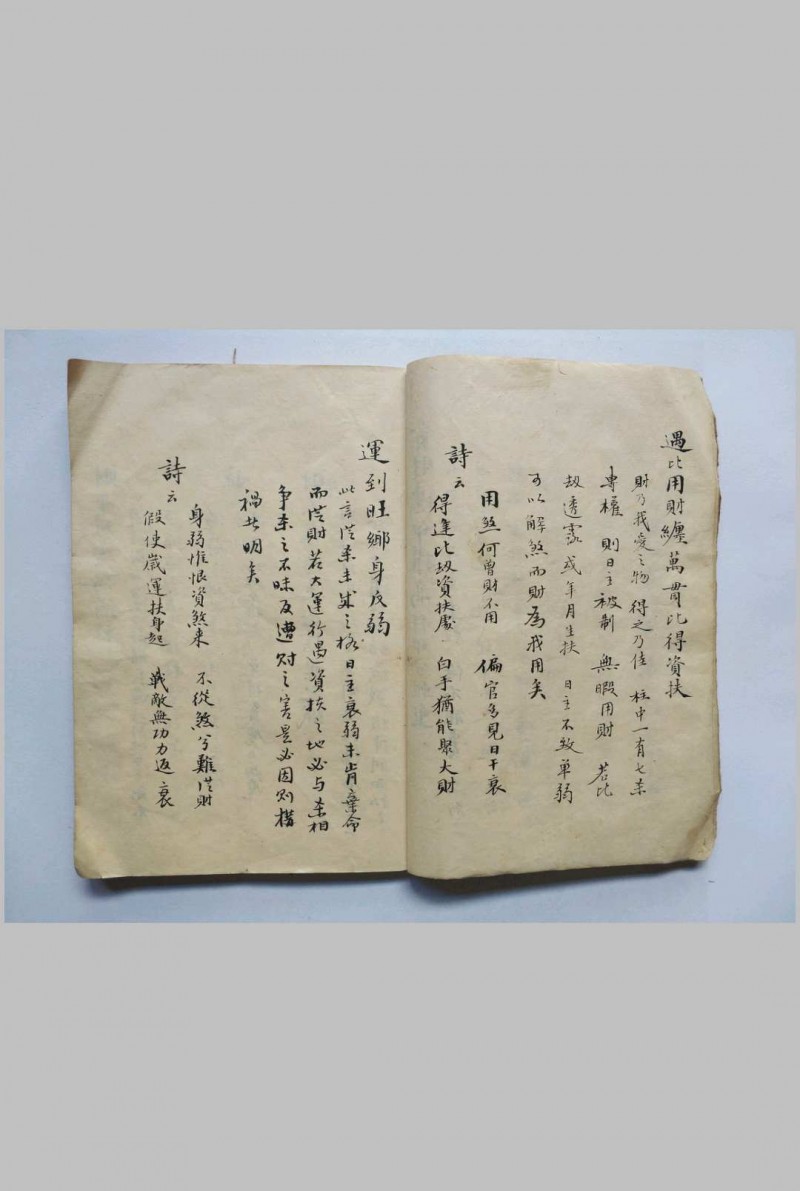 遇比用財纏萬貫比得資扶
財乃我愛之物 得之乃佳 柱中一有七杀
專權 則日主被制 無暇用財 若比
刼透露 或年月生扶 日主不致单弱
可以解煞而財為我用矣
用煞何曾財不用 偏官多見日干衰
詩云 得逢比刼資扶處 白手猶能聚大財
運到旺鄉身反弱
此言従杀未成之格日主衰弱未肯棄命
而従財若大運行遇資扶之地必与杀相
争杀之不昧反遭财之害是必因财搆
禍甚明矣
身弱惟恨資煞来 不從煞兮難従财
詩云 假使歳運扶身起 戰敵無功力返衰